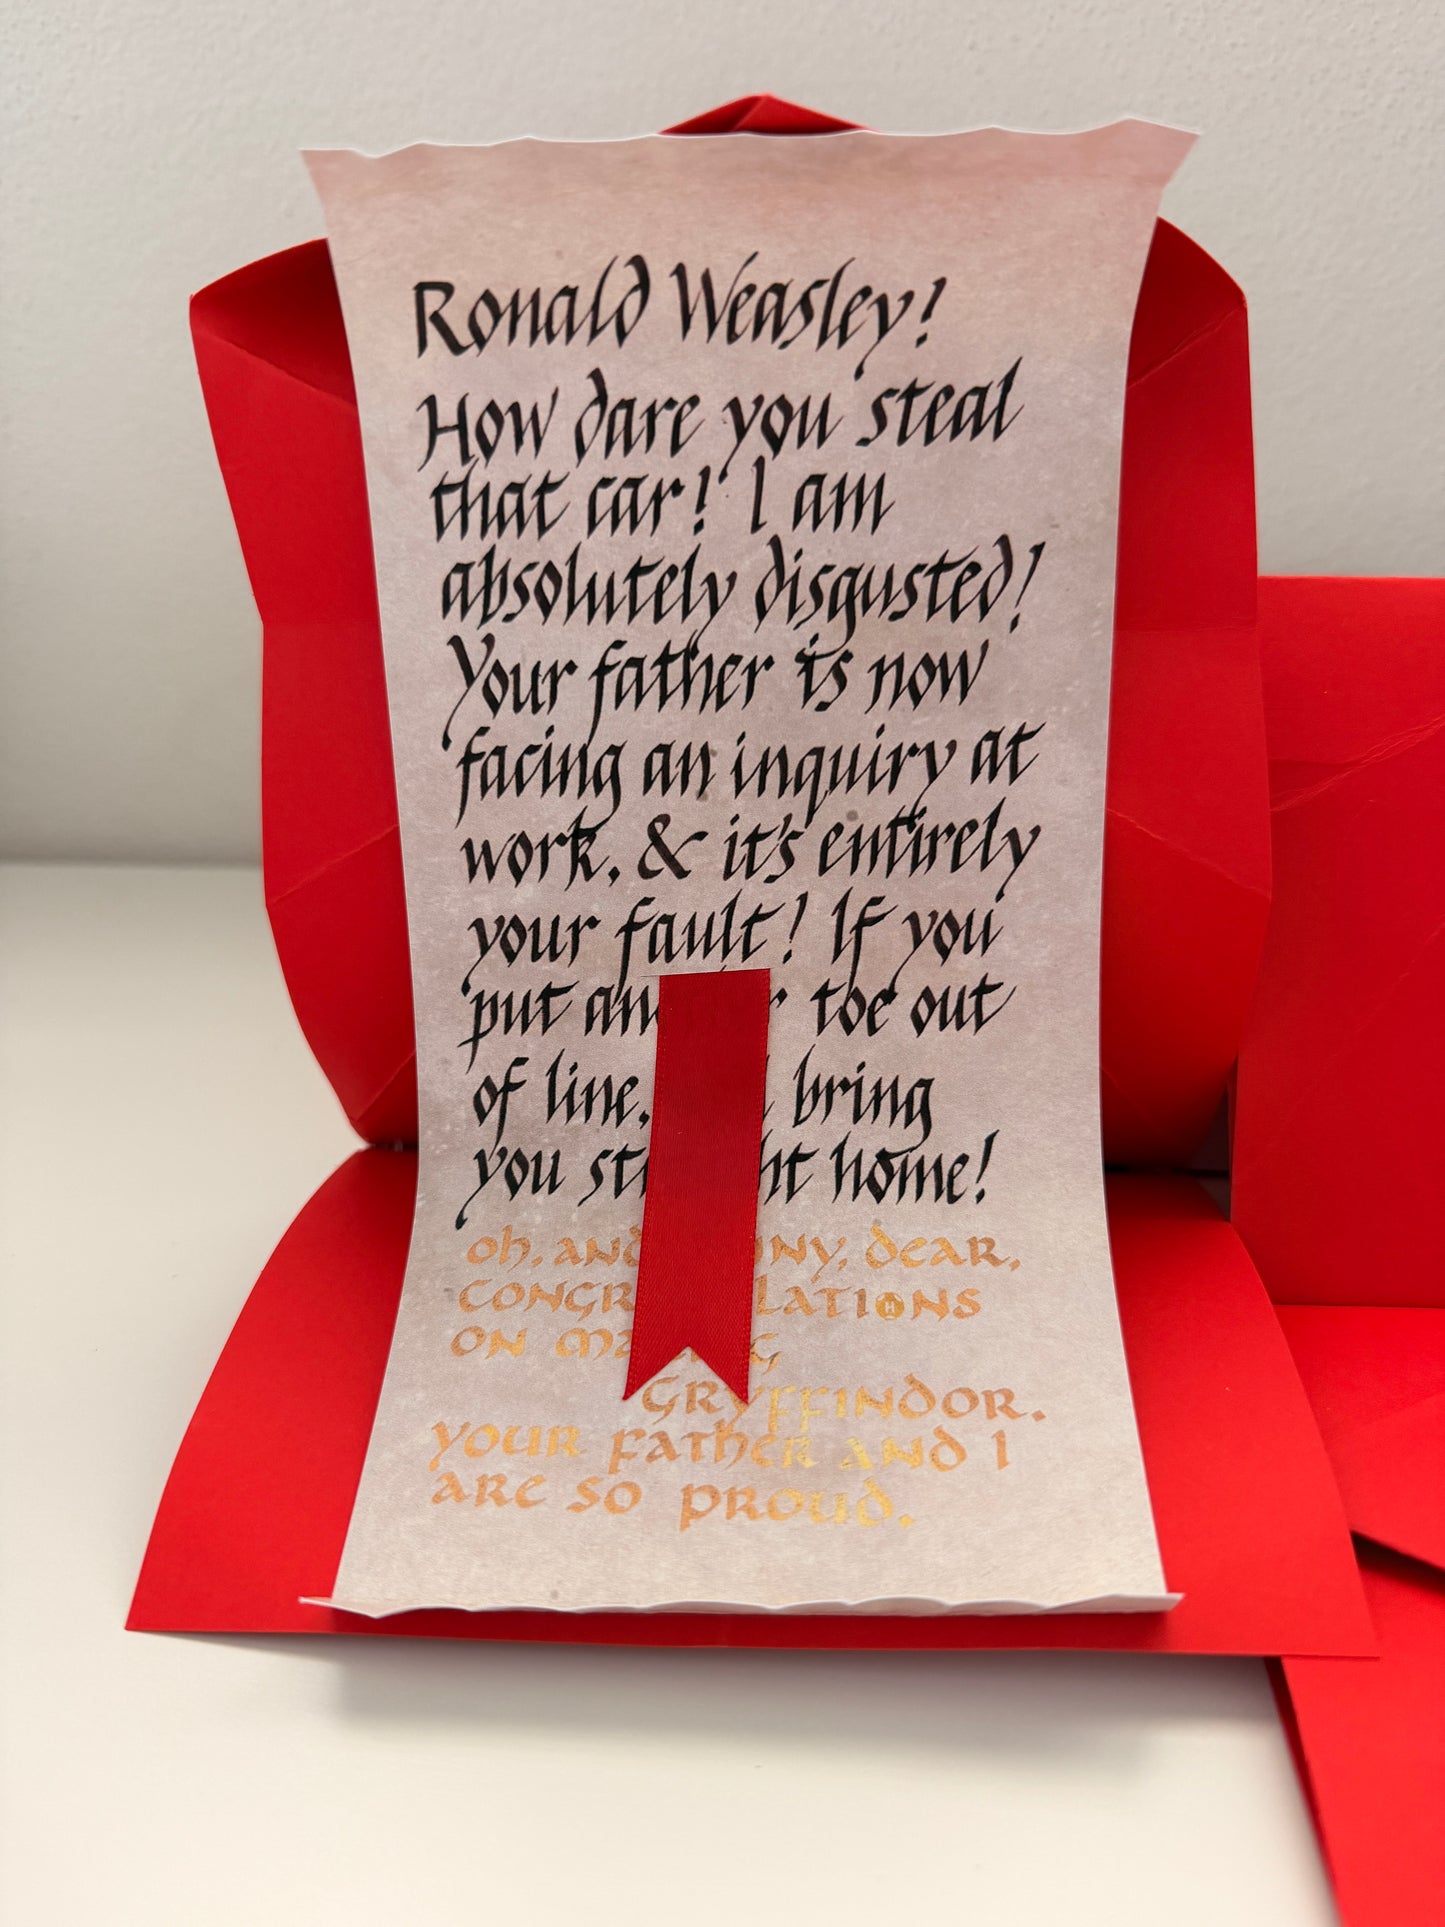 Ronald Weasley!
How dare you steal
that car! I am
absolutely disgusted!
Your father is now
facing an inquiry at
work, & it's entirely
your fault! If you
put toe out
of line, bring
you home!
oh, and dear,
on
Gryffindor.
your father and I
are so proud.